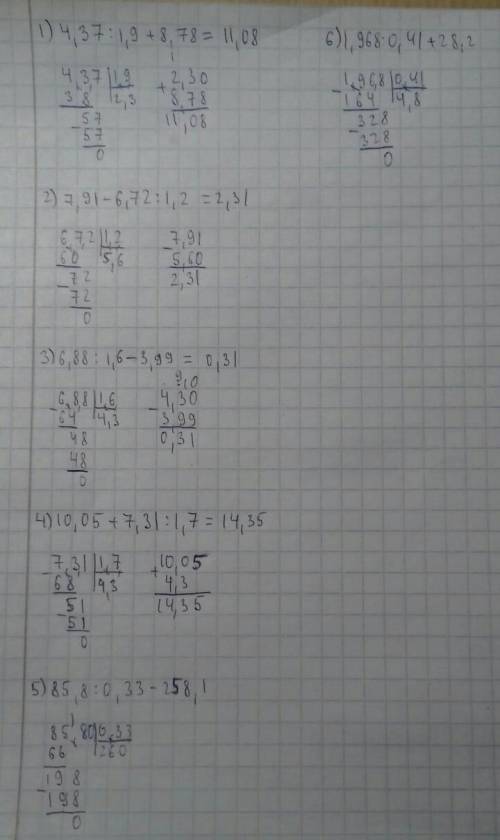 1) 4,37 : 1,9 + 8,78 = 11,08
4,3,7 | 1,9
3 8 | 2,3
- 57
57
0
1
+ 2,30
8,78
11,08
2) 7,91 - 6,72 : 1,2 = 2,31
6,7,2 | 1,2
60 | 5,6
- 72
72
0
- 7,91
5,60
2,31
3) 6,88 : 1,6 - 3,99 = 0,31
- 6,8,8 | 1,6
64 | 4,3
48
48
0
9 10
- 4,30
3,99
0,31
4) 10,05 + 7,31 : 1,7 = 14,35
- 7,3,1 | 1,7
68 | 4,3
- 51
51
0
+ 10,05
4,3
14,35
5) 85,8 : 0,33 - 258,1
85,80 | 0,33
66 | 260
198
- 198
0
6) 1,968 : 0,41 + 28,2
- 1,96,8 | 0,41
164 | 4,8
- 328
328
0